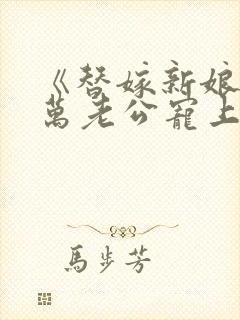 《替嫁新娘
萬老公寵上
馬步芳